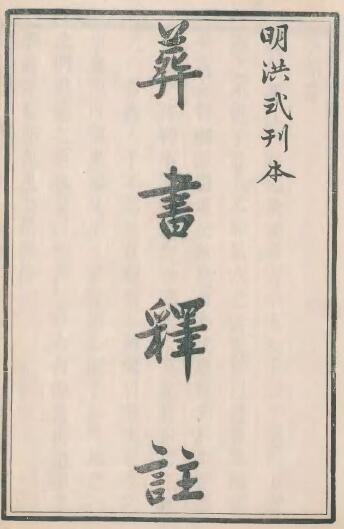 明洪武刊本
葬書釋註